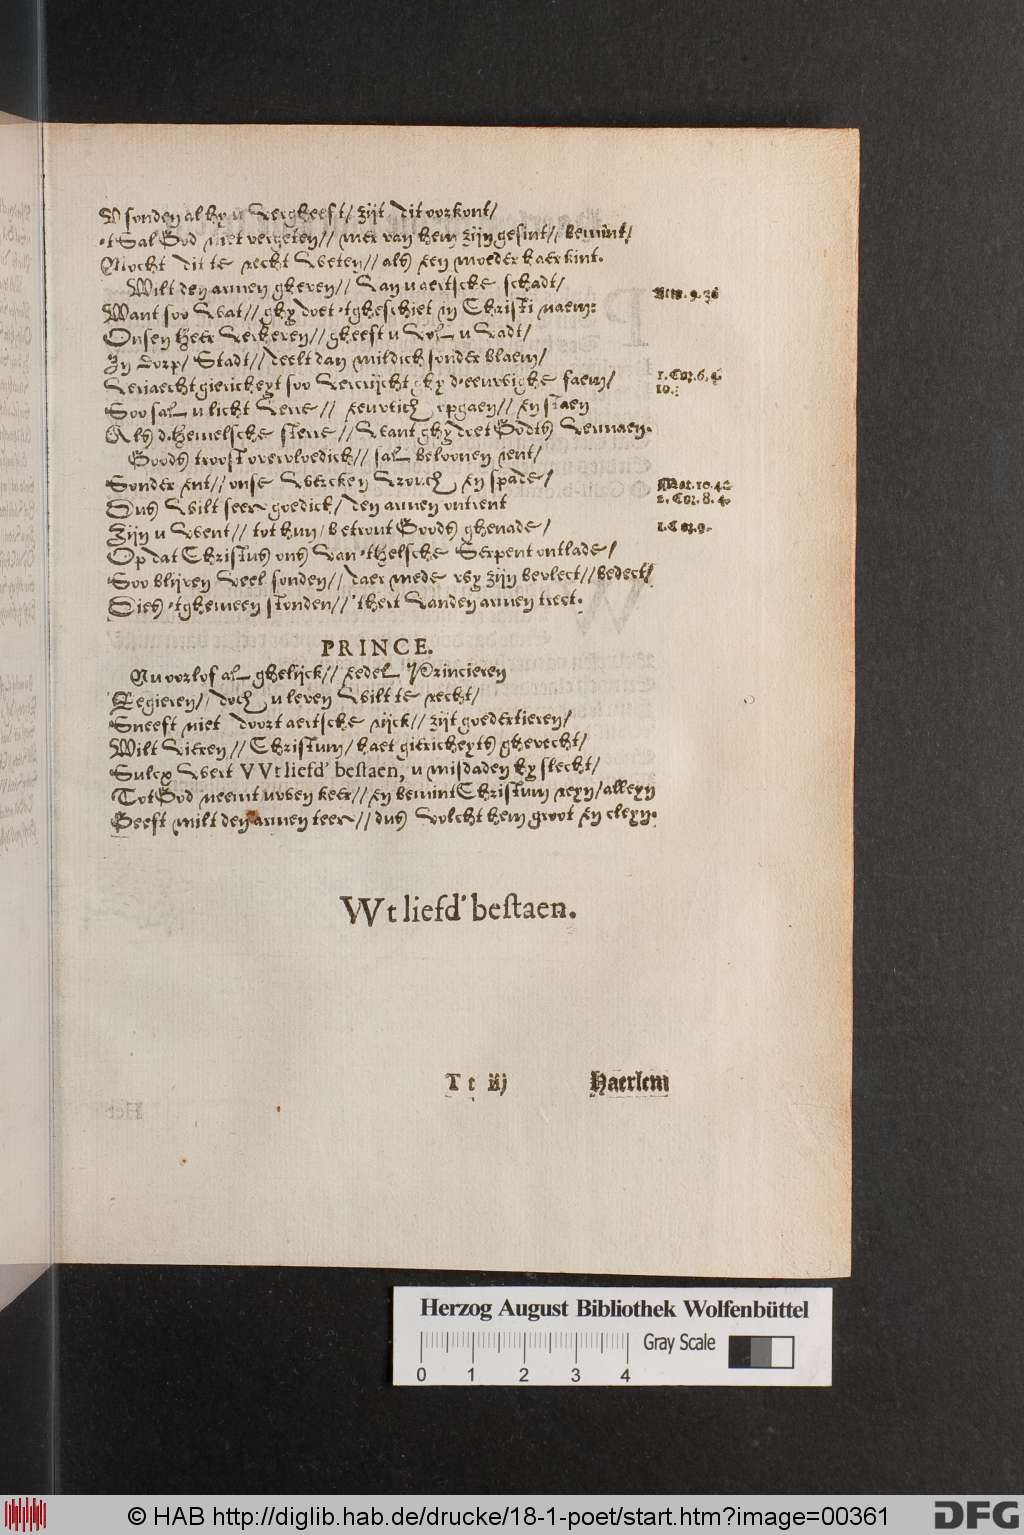 V sonden al hy u vergheeft / zijt dit oorkont /
'tSal God niet vergeten // mer van hem zijn gesint // bemint /
Mocht dit te recht weten // als een moeder haer kint.
Wilt den armen gheven // van u aertsche schadt / Act. 9. 36
Want soo wat // ghy doet 'tgheschiet in Christi naem:
Onsen Heer verheven // gheeft u vol u vadt /
In Dorp / Stadt // deelt dan mildich sonder blaem /
Veriaecht giericheyt soo vercrijcht ghy d'eeuwighe faem / 1. Cor. 6. 
Soo sal u licht verre // eeuwich opgaen // en staen 10.
Als d'hemelsche sterre // want ghy doet Godts vermaen.
Goods troost overvloedich // sal beloonen jent /
Sonder ent // onse wercken vroech en spade / Mat. 10. 42
Dus wilt seer goedich / den armen ontrent 2. Cor. 8. 4.
Zijn u went // tot hun / betrout Goods ghenade / 1. Cor. 9.
Op dat Christus ons van 'thelsche Serpent ontlade /
Soo blijven veel sonden // daer mede wy zijn bevlect // bedect /
Dies 'tghemeen stonden // 'thert vanden armen trect.
PRINCE.
Nu oorlof al ghelijck // eedel Princieren
Regieren // doch u leven wilt te recht /
Sneeft niet door t aertsche rijck // zijt goedertieren /
Wilt vieren // Christum / haet giericheyts ghevecht /
Sulcx wert VVt liefd' bestaen, u misdaden hy slecht /
Tot God neemt uwen keer // en bemint Christum reyn / alleyn
Geeft milt den armen teer // dus volcht hem groot en cleyn.
Wt liefd' bestaen.
T t iij Haerlem
Herzog August Bibliothek Wolfenbüttel
Gray Scale
0 1 2 3 4
© HAB http://diglib.hab.de/drucke/18-1-poet/start.htm?image=00361
DFG